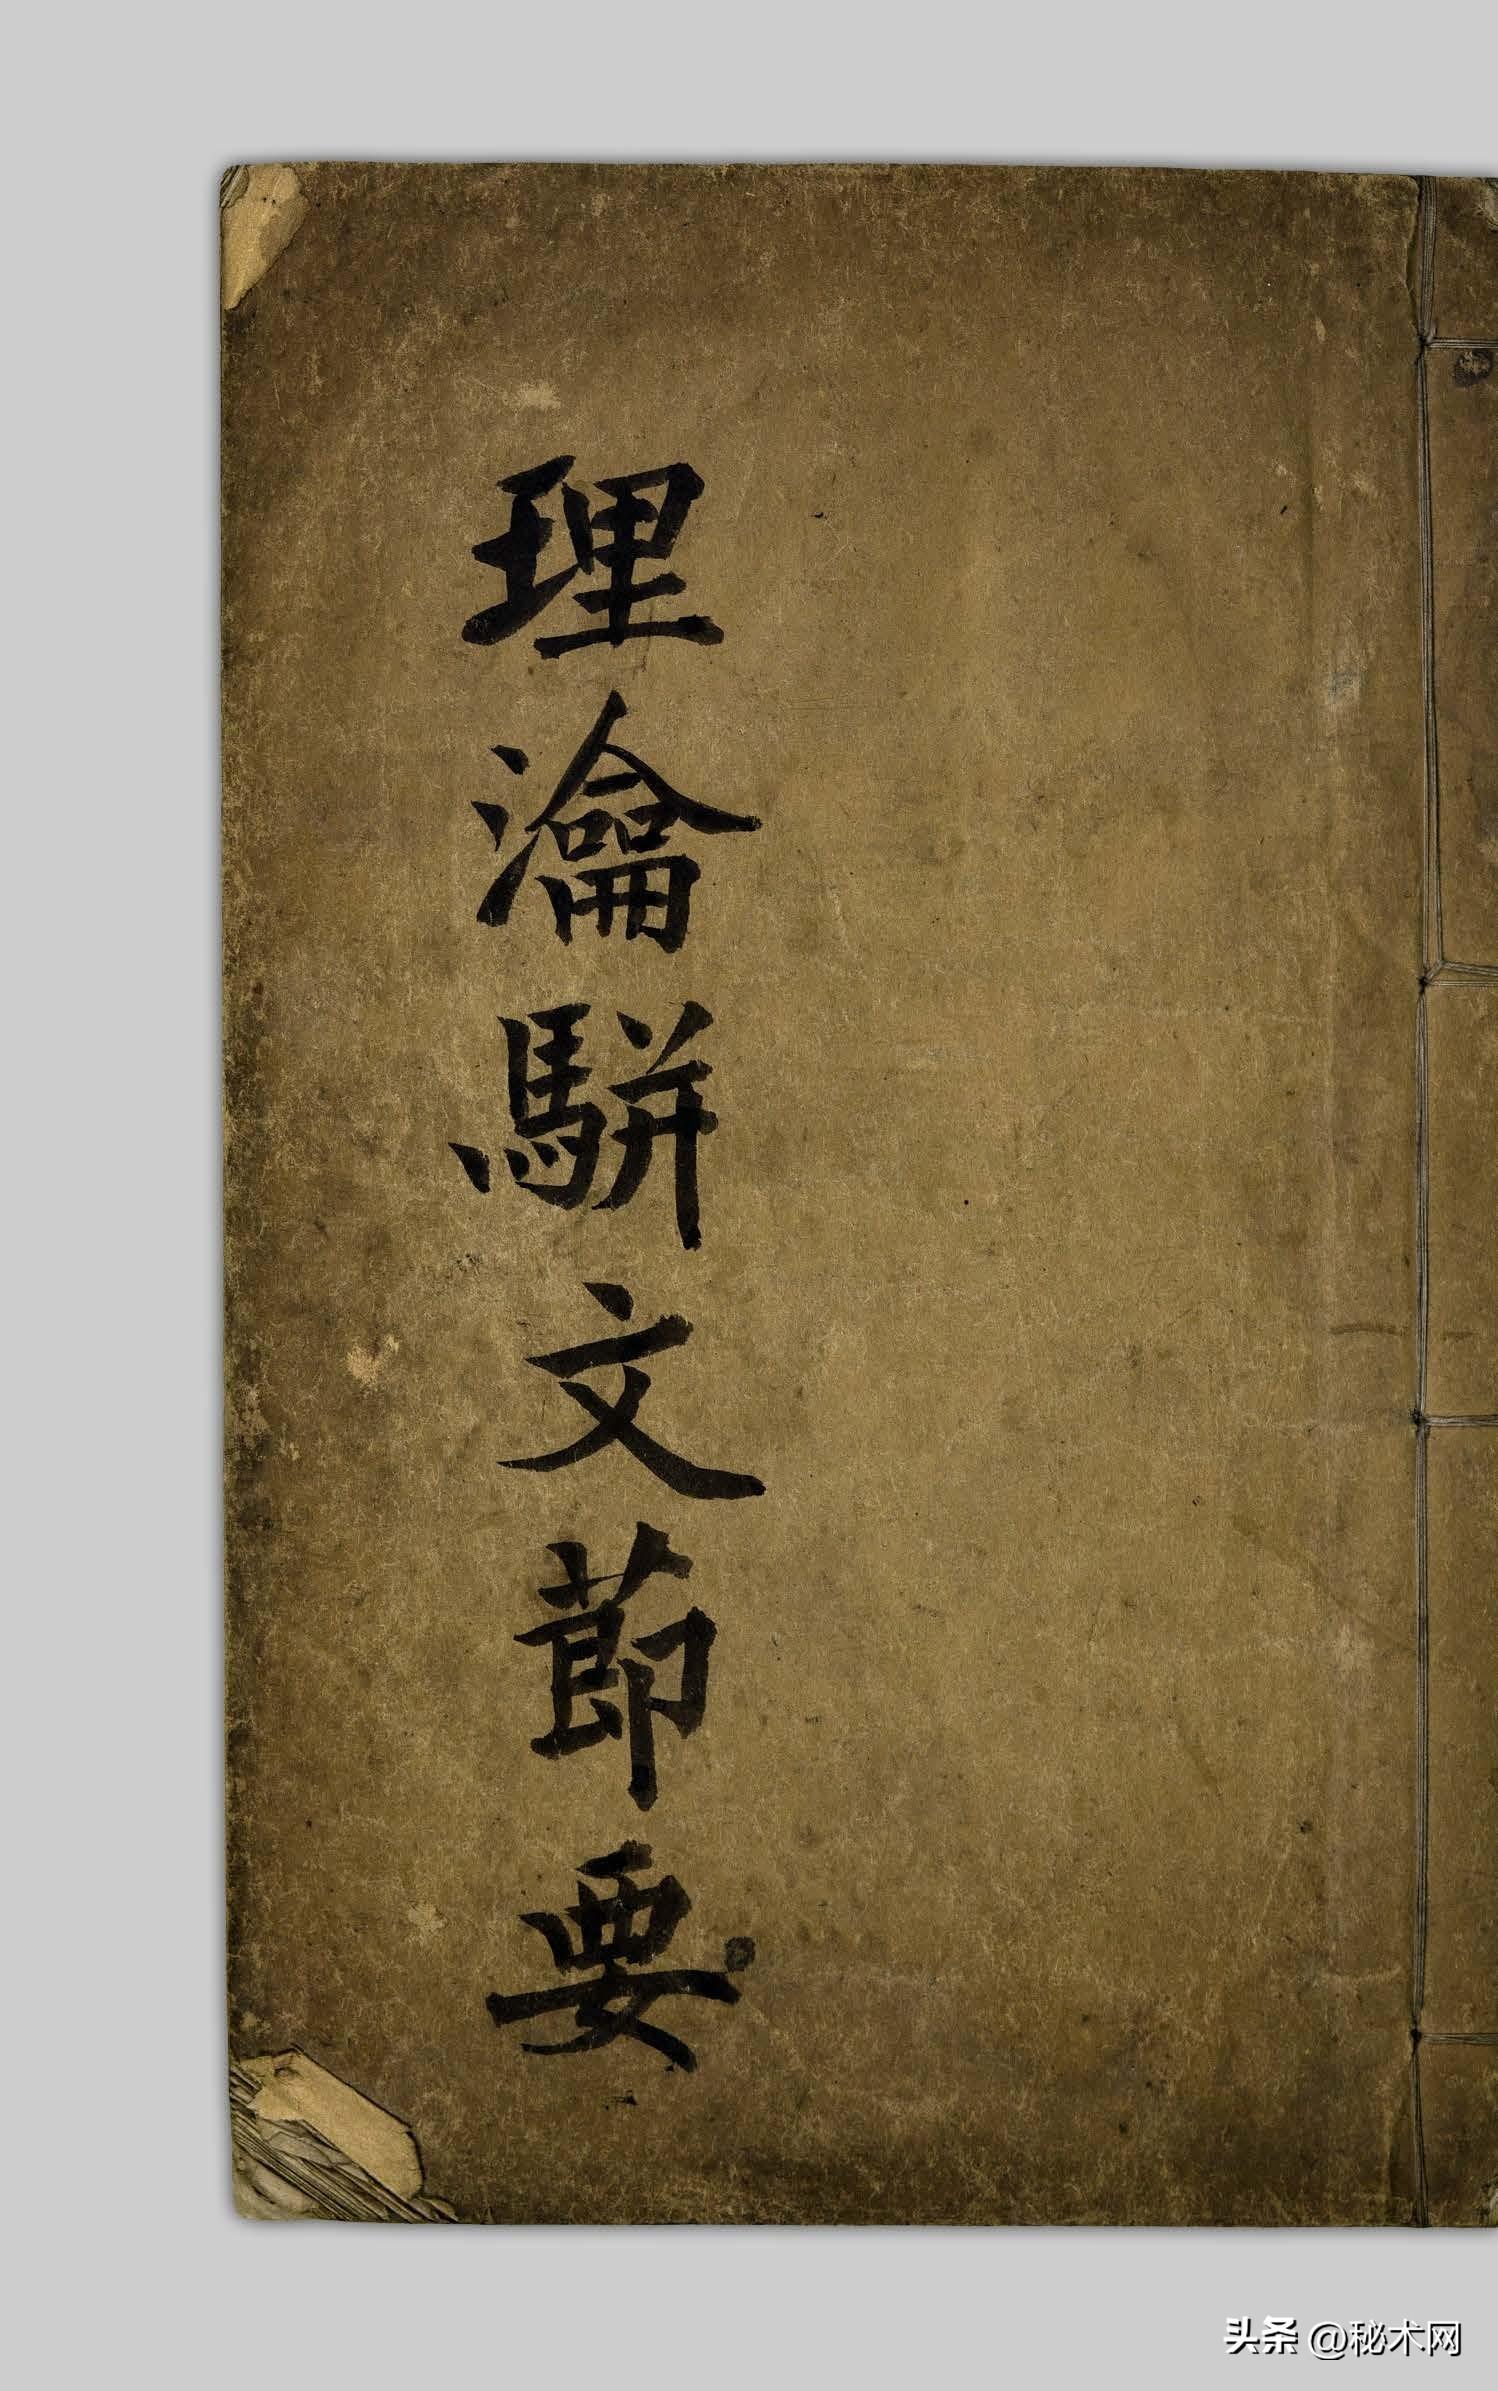 理瀹駢文莭要
头条 @秘术网